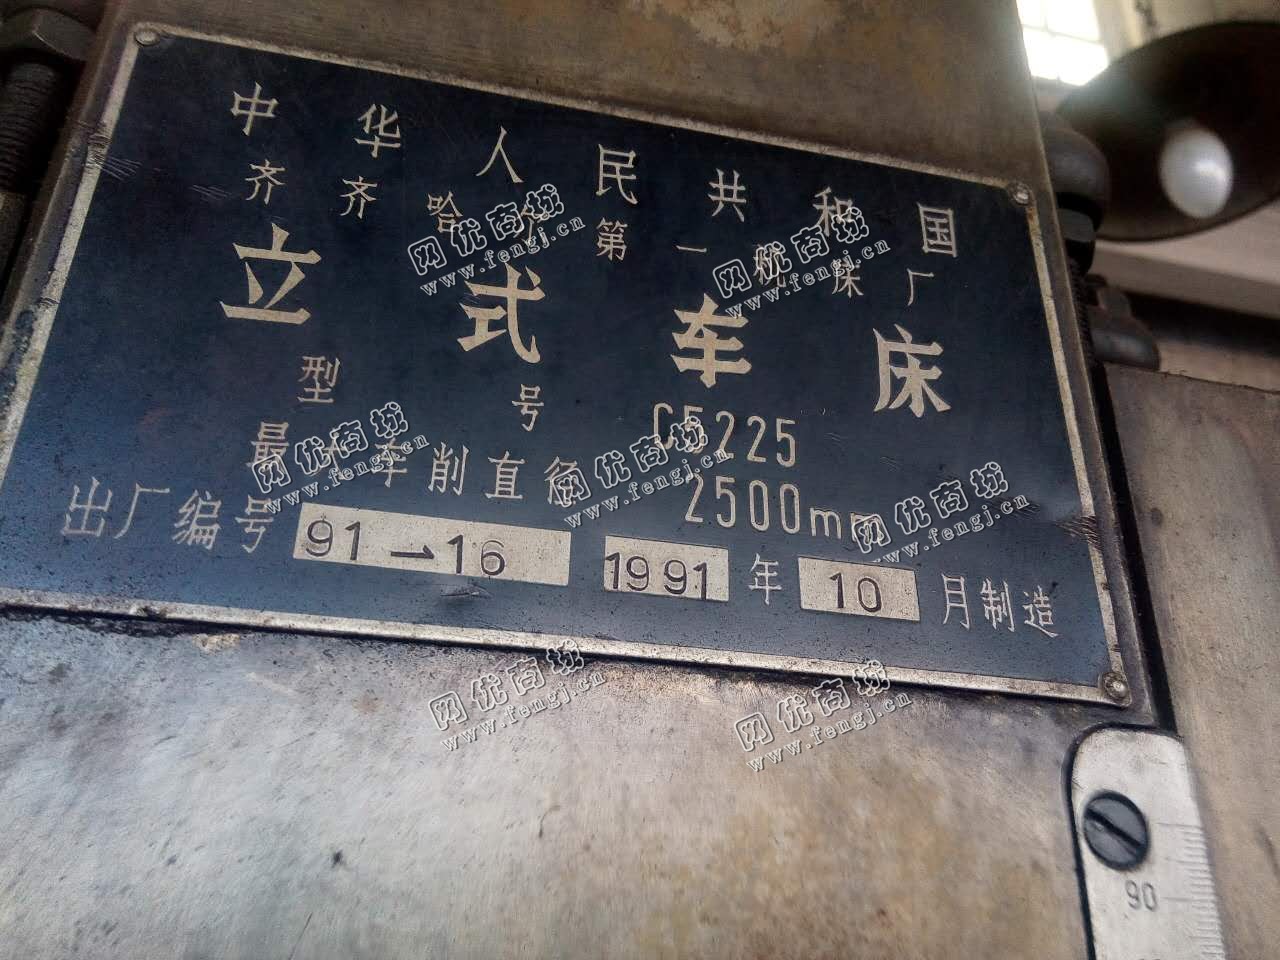 中华人民共和国
齐齐哈尔第一机床厂
立式车床
型号 C5225
最大车削直径 2500mm
出厂编号 91-16 1991年10月制造
网优商城
www.fengj.cn
网优商城
www.fengj.cn
网优商城
www.fengj.cn
网优商城
www.fengj.cn
网优商城
www.fengj.cn
网优商城
www.fengj.cn
网优商城
www.fengj.cn
90